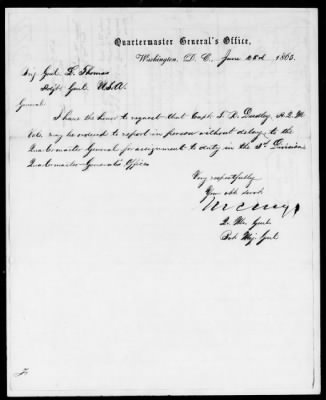 Quartermaster General's Office,
Washington, D. C., June 23d 1865.
Brig. Genl. L. Thomas
Adjt. Genl. U.S.A.
General:
I have the honor to request that Capt. L. R. Dudley, A.Q.M.
may be ordered to report in person without delay, to the
Quartermaster General for assignment to duty in the 3d Division
Quartermaster General's Office.
Very respectfully
Your obt. servt.
Q. Mr. Genl.
Bvt. Maj. Genl.